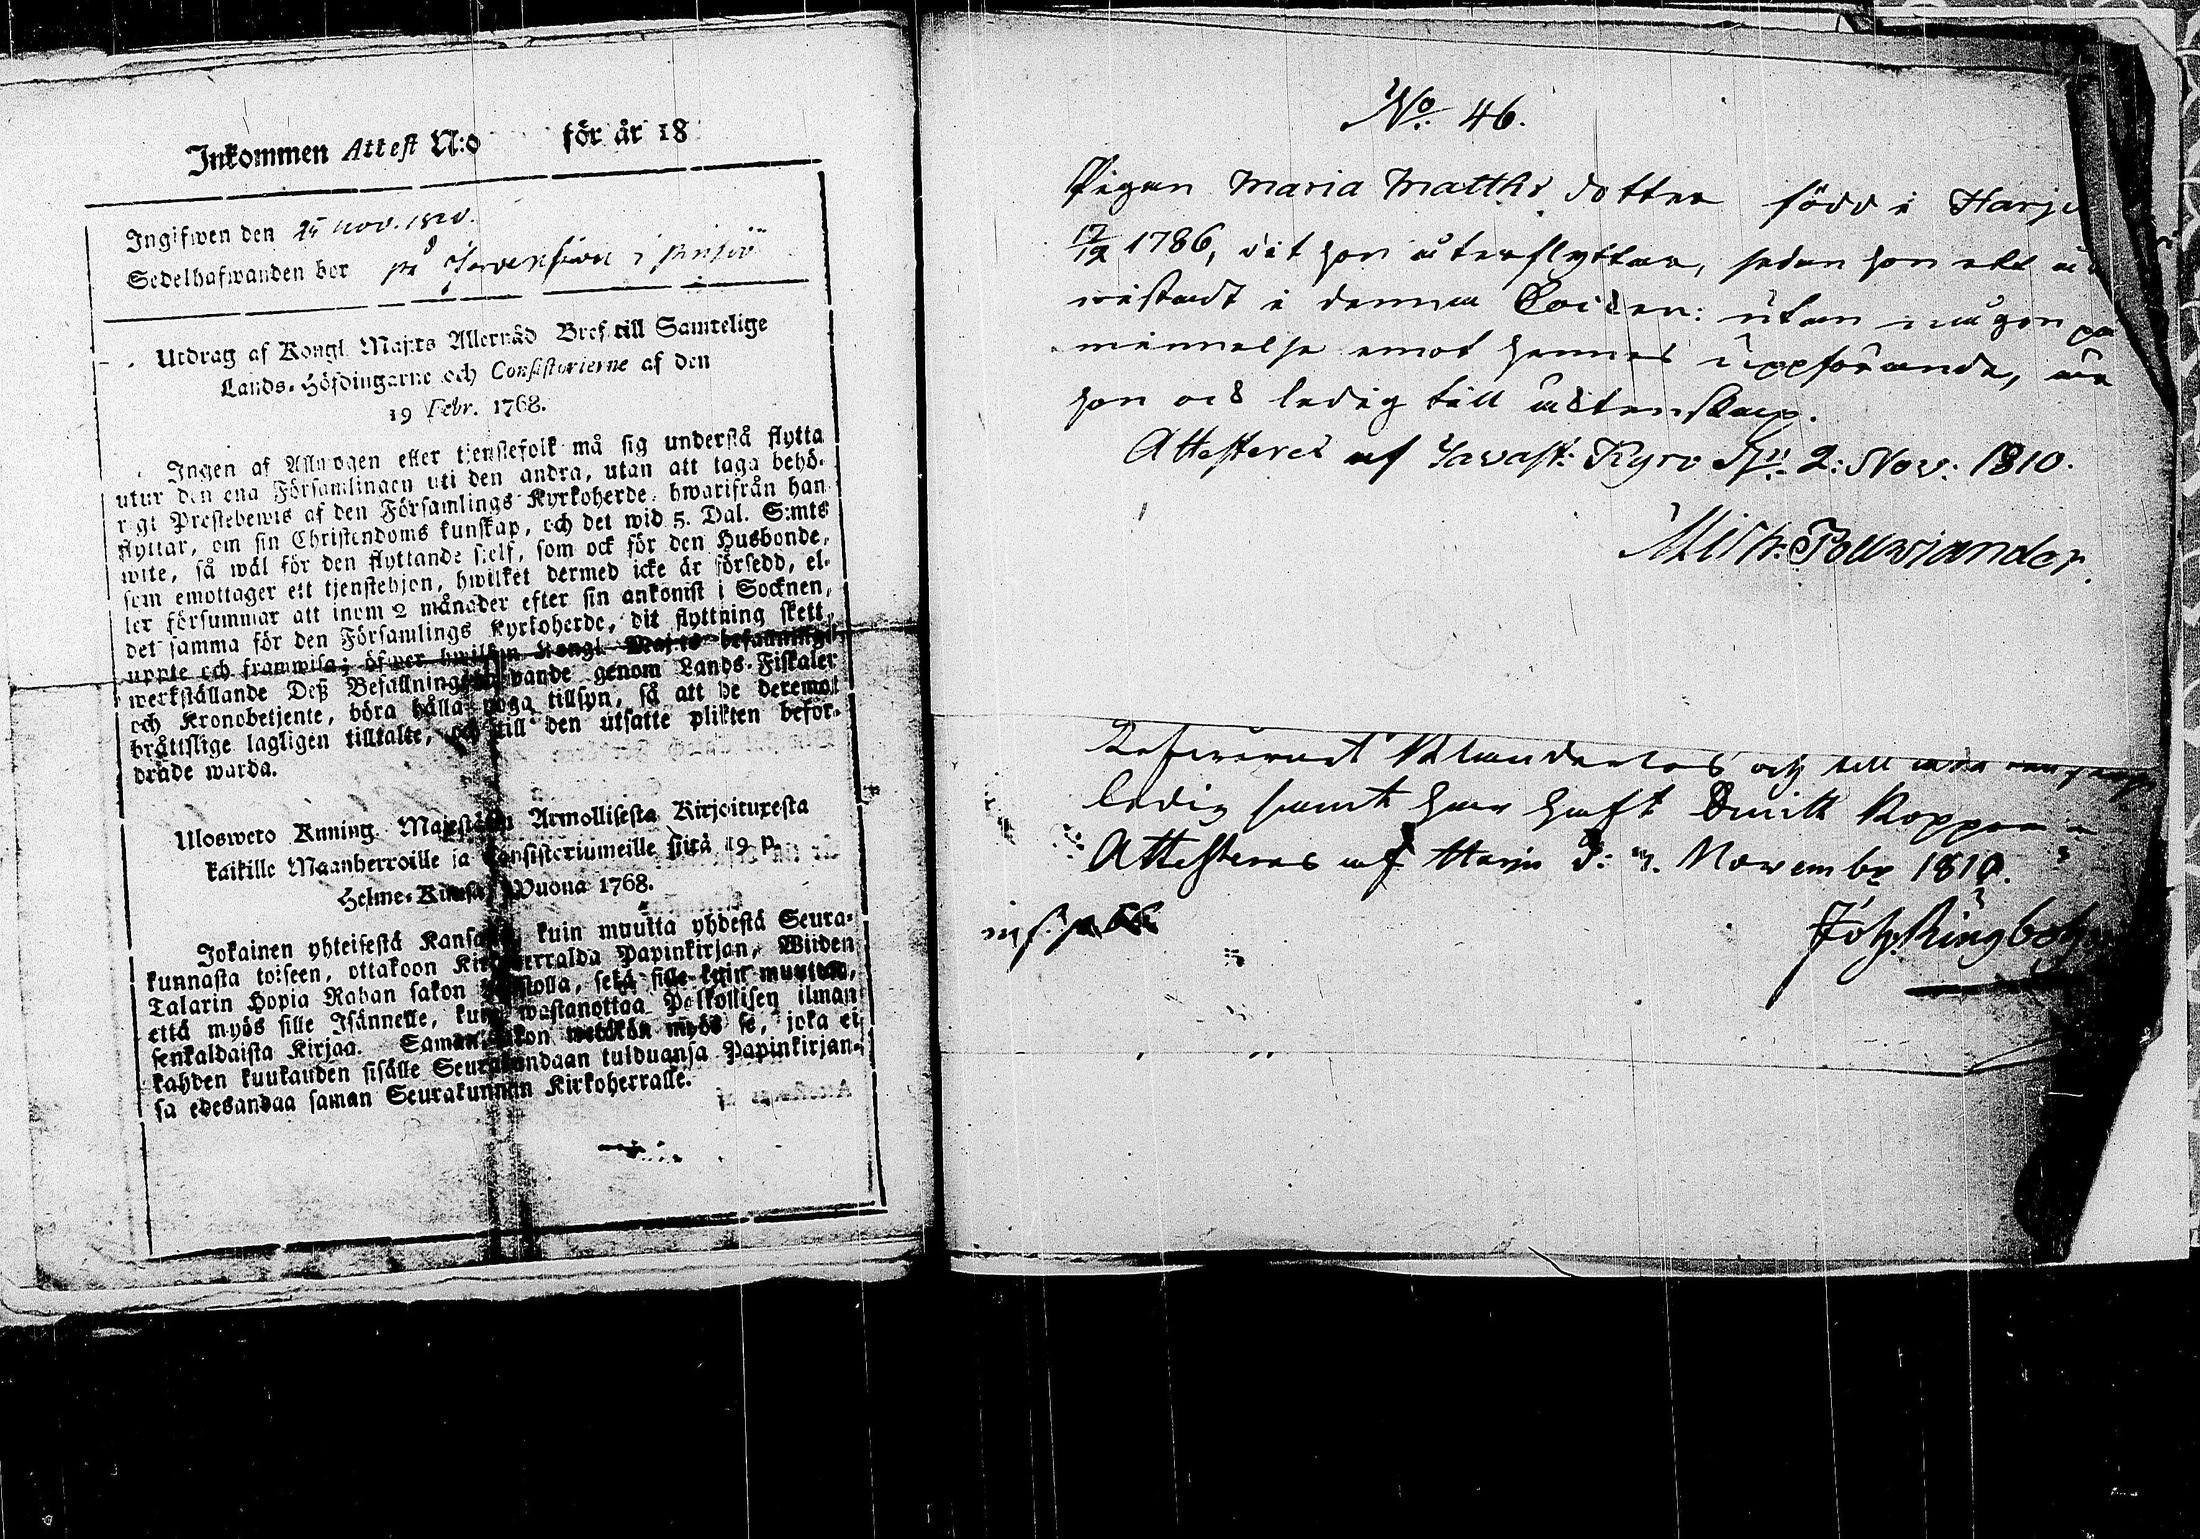 Inkommen Attest N:o för år 18
Ingifwen den 25 nov. 1810.
Sedelhafwanden bor på i
Utdrag af Kongl. Maj:ts Allernåd Bref till Samtelige
Lands-Höfdingarne och Consistorierne af den
19 Febr. 1768.
Ingen af Allmogen eller tjenstefolk må sig understå flytta
utur den ena Församlingen uti den andra, utan att taga behö-
rigt Prestebewis af den Församlings Kyrkoherde, hwarifrån han
flyttar, om sin Christendoms kunskap, och det wid 5. Dal. S:mts
wite, så wäl för den flyttande sielf, som ock för den Husbonde,
som emottager ett tjenstehjon, hwilket dermed icke är försedd, el-
ler försummar att inom 2 månader efter sin ankomst i Socknen,
det samma för den Församlings Kyrkoherde, dit flyttning skett,
uppte och framwisa; öfwer hwilken Kongl. Maj:ts befallning
werkställande Deß Befallningshafwande genom Lands-Fiskaler
och Kronobetjente, böra hålla noga tillsyn, så att de deremot
bråttslige lagligen tilltalte, och till den utsatte plikten befor-
dräde warda.
Ulosweto Kuning. Majestätin Armollisesta Kirjoituxesta
kaikille Maanherroille ja Consistoriumeille siitä 19 p.
Helme-Kuusa Wuona 1768.
Jokainen yhteisestä Kansasta, kuin muutta yhdestä Seura-
kunnasta toiseen, ottakoon Kirkoherralda Papinkirjan, Wiiden
Talarin Hopia Rahan sakon uhkolla, sekä sille kuin muuttaa,
että myös sille Isännelle, kuin wastanottaa Palkollisen ilman
senkaldaista Kirjaa. Saman sakon wetäkön myös se, joka ei
kahden kuukauden sisälle Seurakundaan tulduansa Papinkirjan-
sa edesandaa saman Seurakunnan Kirkoherralle.
No. 46.
Pigan Maria Matths dotter född i Harju
17/12 1786, dit hon återflyttar, sedan hon ett år
wistadt i denna utan någon på
minnelse emot hennes uppförande, är
hon ock ledig till äktenskap.
Attesteres af Tavast: Kyro d. 2: Nov: 1810.
Mich: Pollviander.
Refererad Klanderlös och till
ledig samt har haft Koppor
Attesteras af Harju d: November 1810.
Joh. Ringbom